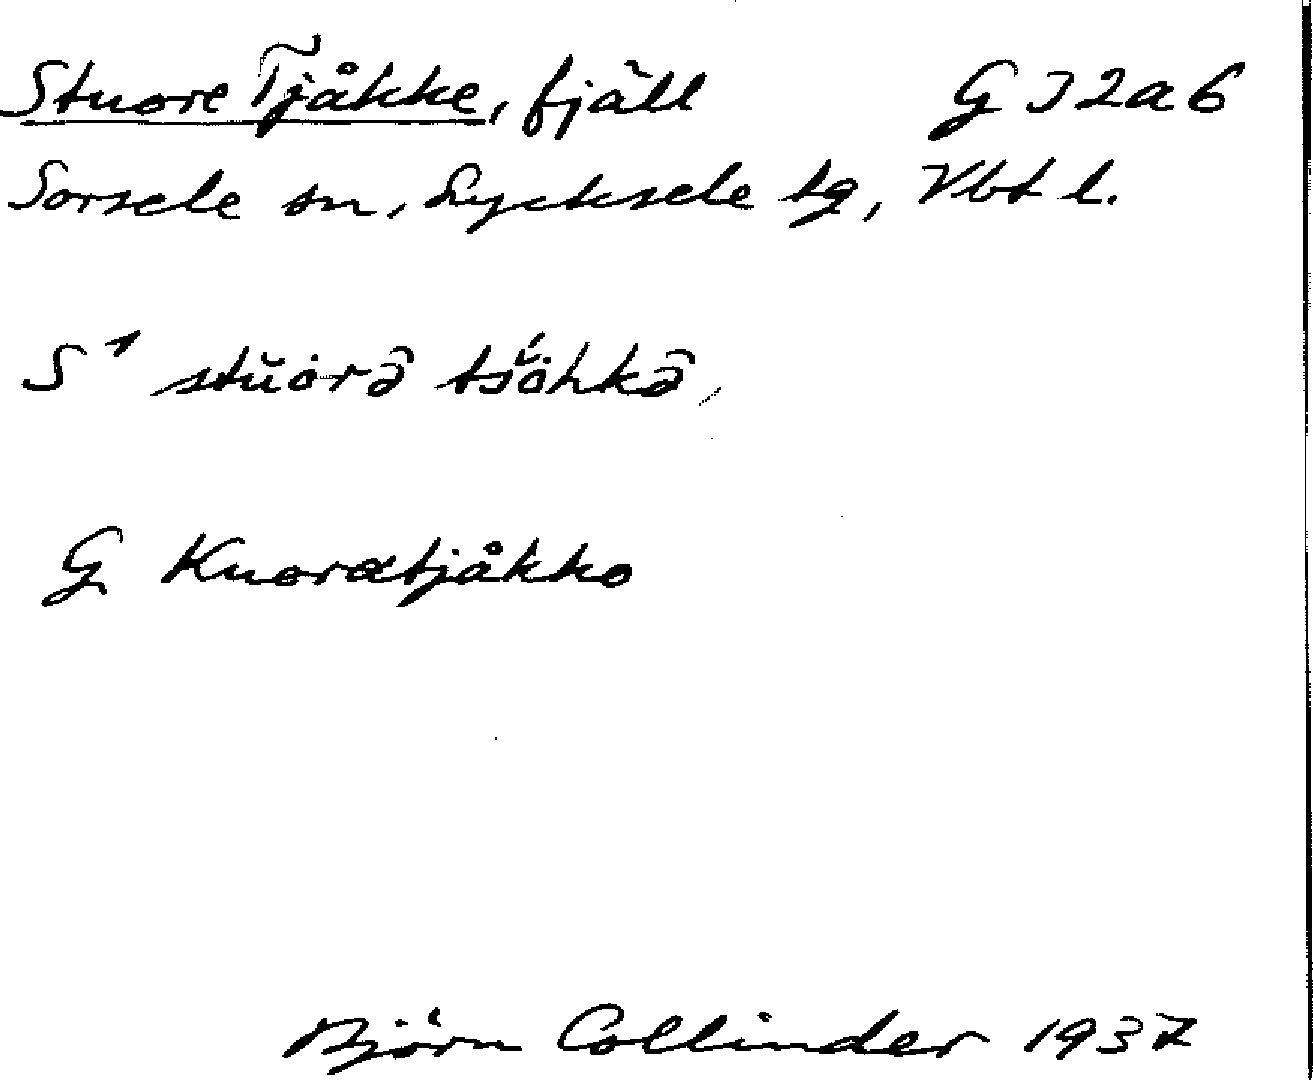 Stuore Tjåkke, fjäll G32a6
Sorsele sn, Lycksele tg, Vbt l.
S¹
G Kuoratjåkko
Björn Collinder 1937